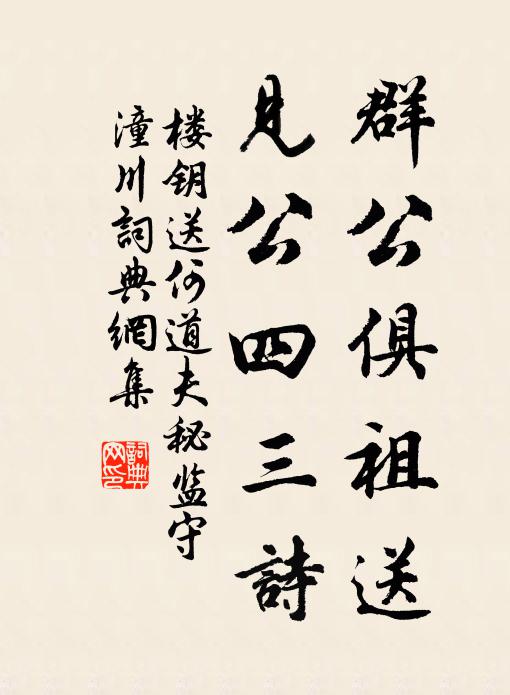 群公俱祖送
見公四三詩
楼钥送何道夫秘监守
潼川詞典網集
詞典网印